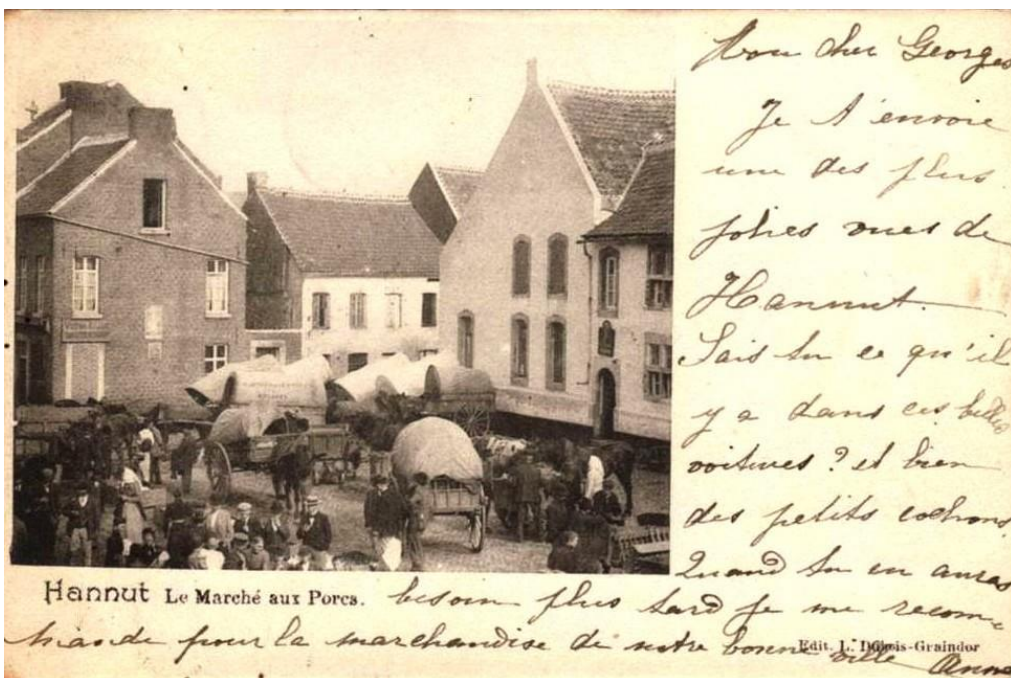 Mon cher Georges
Je t'envoie
une des plus
jolies vues de
Hannut.
Sais tu ce qu'il
y a dans ces belles
voitures? et bien
des petits cochons
Quand tu en auras
besoin plus tard je me recom-
mande pour la marchandise de notre bonne ville Anna
Hannut Le Marché aux Porcs.
Edit. L. Dubois-Graindor